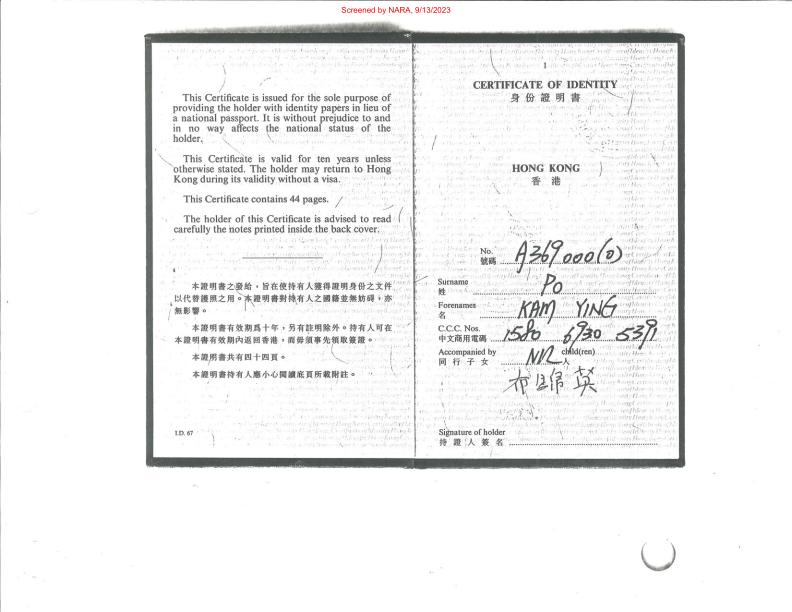 Screened by NARA, 9/13/2023
This Certificate is issued for the sole purpose of
providing the holder with identity papers in lieu of
a national passport. It is without prejudice to and
in no way affects the national status of the
holder.
This Certificate is valid for ten years unless
otherwise stated. The holder may return to Hong
Kong during its validity without a visa.
This Certificate contains 44 pages.
The holder of this Certificate is advised to read
carefully the notes printed inside the back cover.
本證明書之發給，旨在使持有人獲得證明身份之文件
以代替護照之用。本證明書對持有人之國籍並無妨碍，亦
無影響。
本證明書有效期爲十年，另有註明除外。持有人可在
本證明書有效期內返回香港，而毋須事先領取簽證。
本證明書共有四十四頁。
本證明書持有人應小心閱讀底頁所載附註。
I.D. 67
1
CERTIFICATE OF IDENTITY
身份證明書
HONG KONG
香港
No.
號碼 A369000(0)
Surname
姓 PO
Forenames
名 KAM YING
C.C.C. Nos.
中文商用電碼 1580 6930 5391
Accompanied by NIL child(ren)
同行子女 人
布 歸 英
Signature of holder
持證人簽名